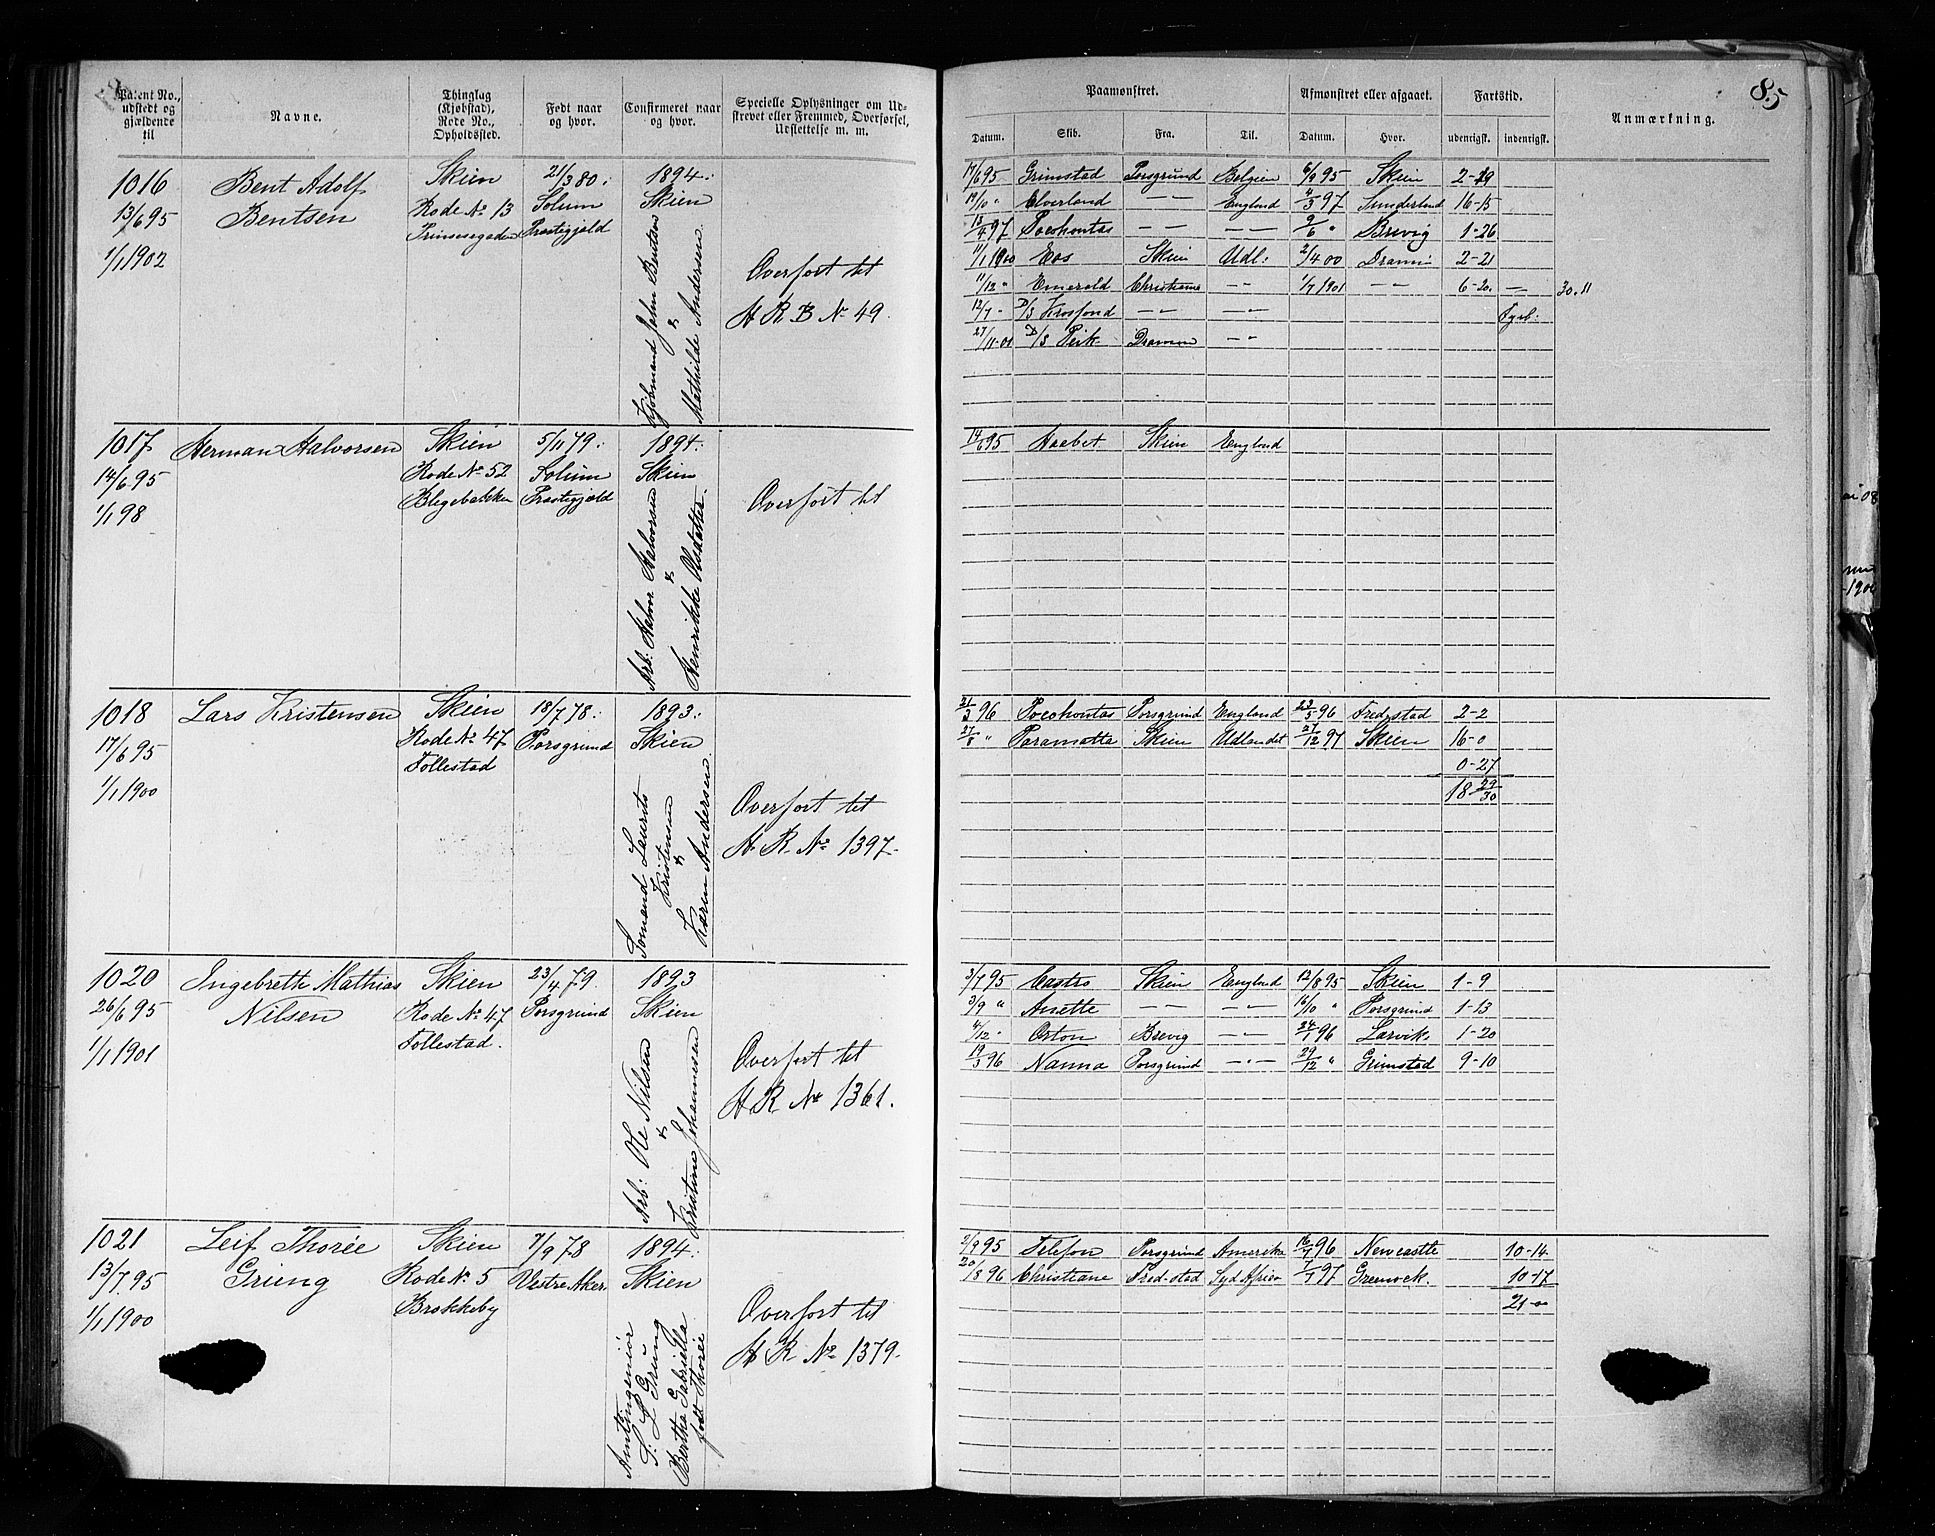 85
Patent No., udstedt og gjældende til
Navne.
Thinglag (Kjøbstad), Rode No., Opholdssted.
Født naar og hvor.
Confirmeret naar og hvor.
Specielle Oplysninger om Udstrevet eller Fremmed, Overførsel, Udslettelse m. m.
Paamønstret.
Afmønstret eller afgaaet.
Fartstid.
Anmærkning.
Datum. Skib. Fra. Til. Datum. Hvor. udenrigsk. indenrigsk.
1016
13/6 95
1/1 1902
Bent Adolf
Bentsen
Skien
Rode No 13
Prinsessegaden
21/3 80.
Solum
Præstegjeld
1894.
Skien
Kjøbmand John Bentsen
&
Mathilde Andersen.
Overført til
H R B No 49.
17/6 95 Grimstad Porsgrund Belgien 6/9 95 Skien 2-19
19/10 " Elverland — — England 4/3 97 Sunderland 16-15
13/4 97 Pocohontas — — — — 9/6 " Brevig 1-26
11/1 1900 Eos Skien Udl: 2/4 00 Dramn 2-21
11/12 " Emerald Christiania — " — 1/7 1901 — " — 6-20. — 30.11
12/7 - D/S Krosfond — " — — " — Fyrb:
27/11-01 D/S Peik Dramn — " —
1017
14/6 95
1/1 98
Herman Halvorsen
Skien
Rode No 52
Blegebakken
5/11 79.
Solum
Præstegjeld
1894.
Skien
Arb: Halvor Halvorsen
&
Henrikke Olsdatter.
Overført til
14/6 95 Haabet Skien England
1018
17/6 95
1/1 1900
Lars Kristensen
Skien
Rode No 47
Follestad
18/7 78.
Porsgrund
1893.
Skien
Sømand Laurits
Kristensen
&
Karen Andersen
Overført til
H. R. No 1397.
21/3 96 Pocohontas Porsgrund England 23/5 96 Fredrstad 2-2
27/8 " Paramatta Skien Udlandet 27/12 97 Skien 16-0
0-27
18 29/30
1020
26/6 95
1/1 1901
Ingebreth Mathias
Nilsen
Skien
Rode No 47
Follestad.
23/4 79.
Porsgrund
1893
Skien
Arb: Ole Nilsen
&
Kristine Johannesen
Overført til
H R No 1361.
3/7 95 Castro Skien England 12/8 95 Skien 1-9
3/9 " Anette — " — — " — 16/10 " Porsgrund 1-13
4/12 " Orton Brevig — " — 24/1 96 Larvik 1-20
19/3 96 Nanna Porsgrund — " — 29/12 " Grimstad 9-10
1021
13/7 95
1/1 1900
Leif Thorée
Grüng
Skien
Rode No. 5
Brekkeby
7/9 78
Vestre Aker.
1894.
Skien
Amtsingeniør
S. L Grüng
Bertha Gabriella
født Thorée
Overført til
H R No 1379.
2/9 95 Telefon Porsgrund Amerika 16/7 96 Newcastle 10-14.
20/8 96 Christiane Fred-stad Syd Africa 7/7 97 Grenock. 10-17
21-00